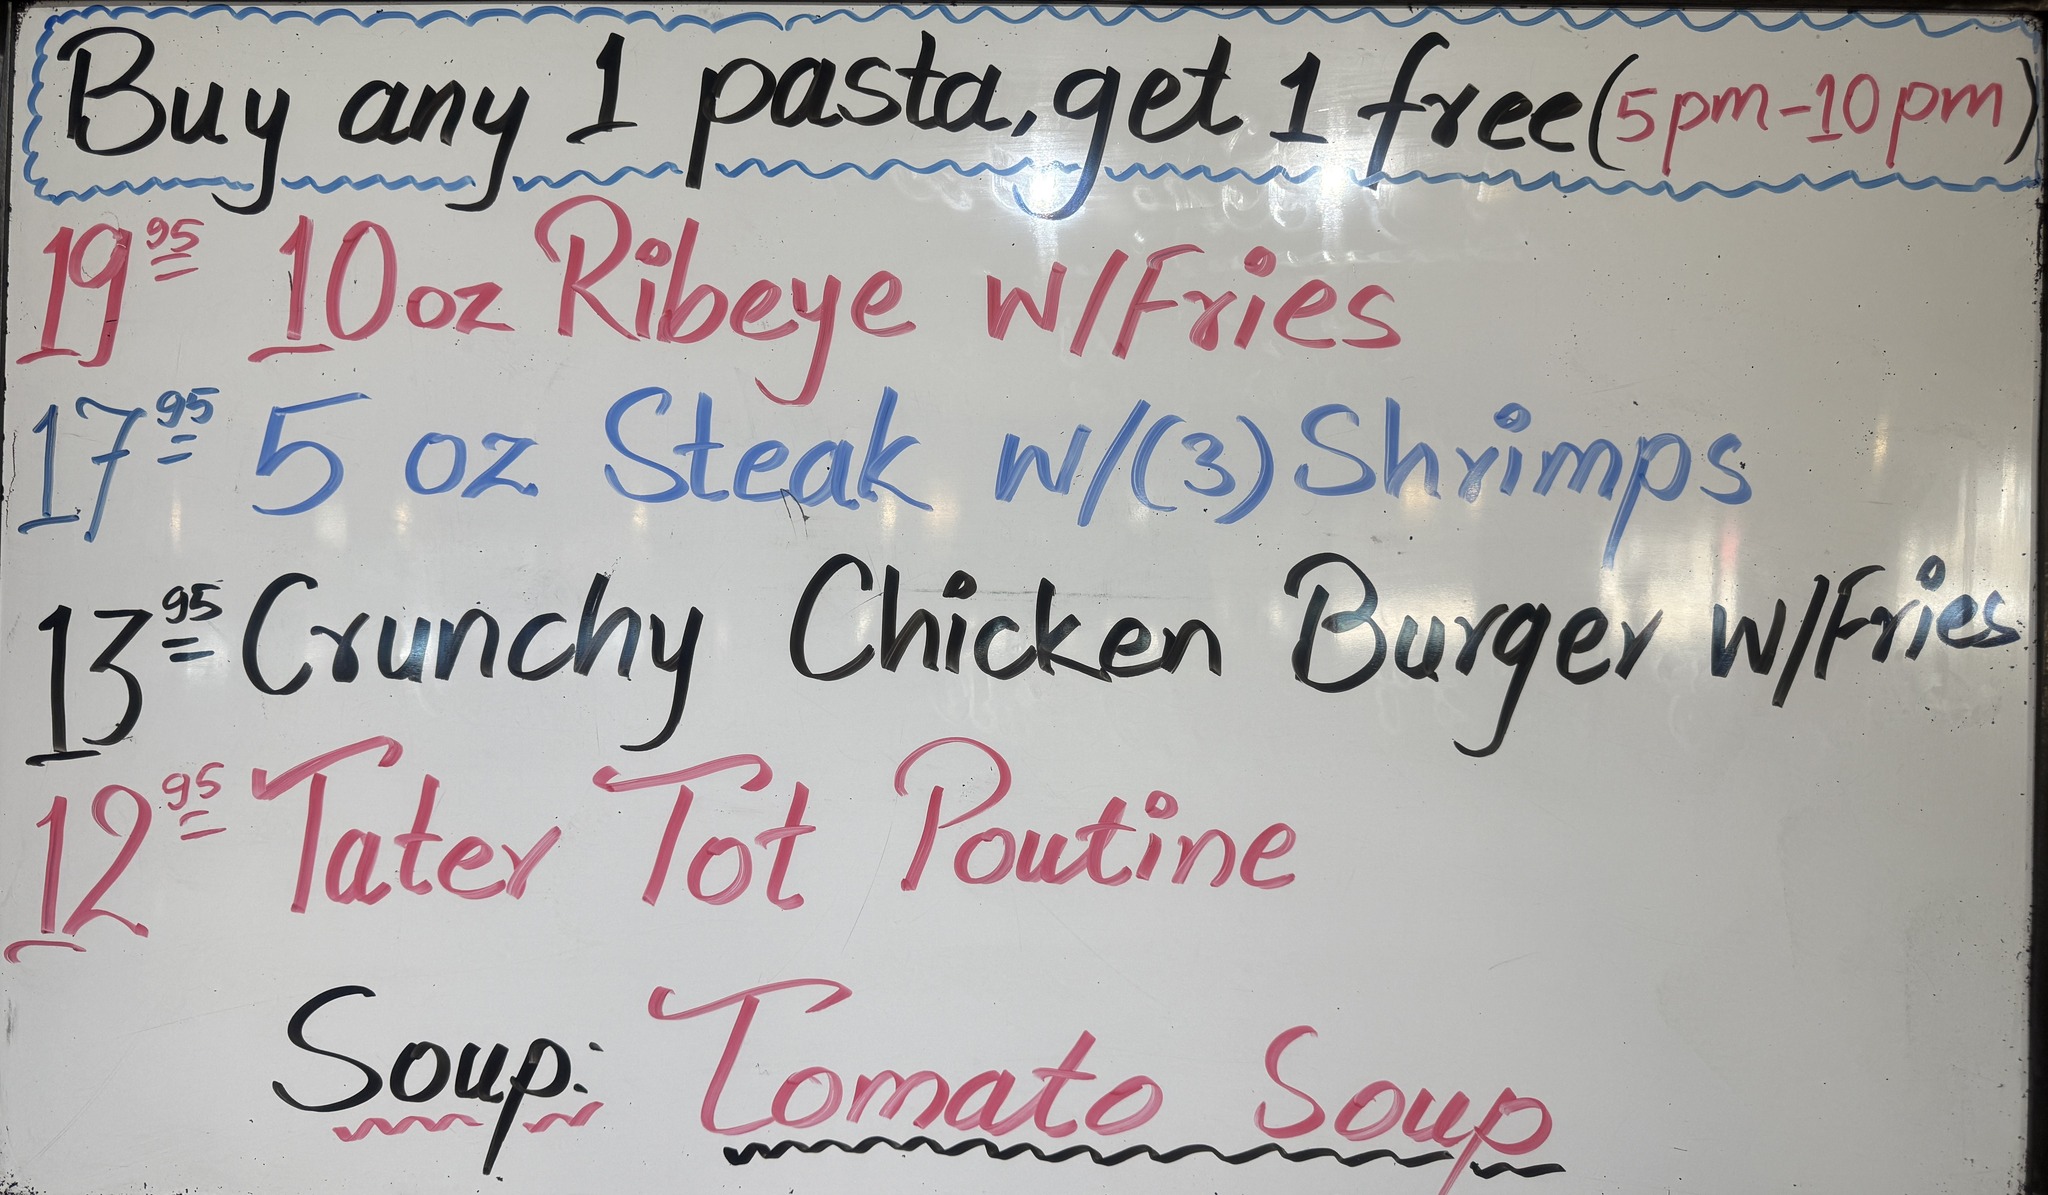 Buy any 1 pasta, get 1 free (5pm-10pm)
19 95 10oz Ribeye w/Fries
17 95 5 oz Steak w/(3) Shrimps
13 95 Crunchy Chicken Burger w/Fries
12 95 Tater Tot Poutine
Soup: Tomato Soup